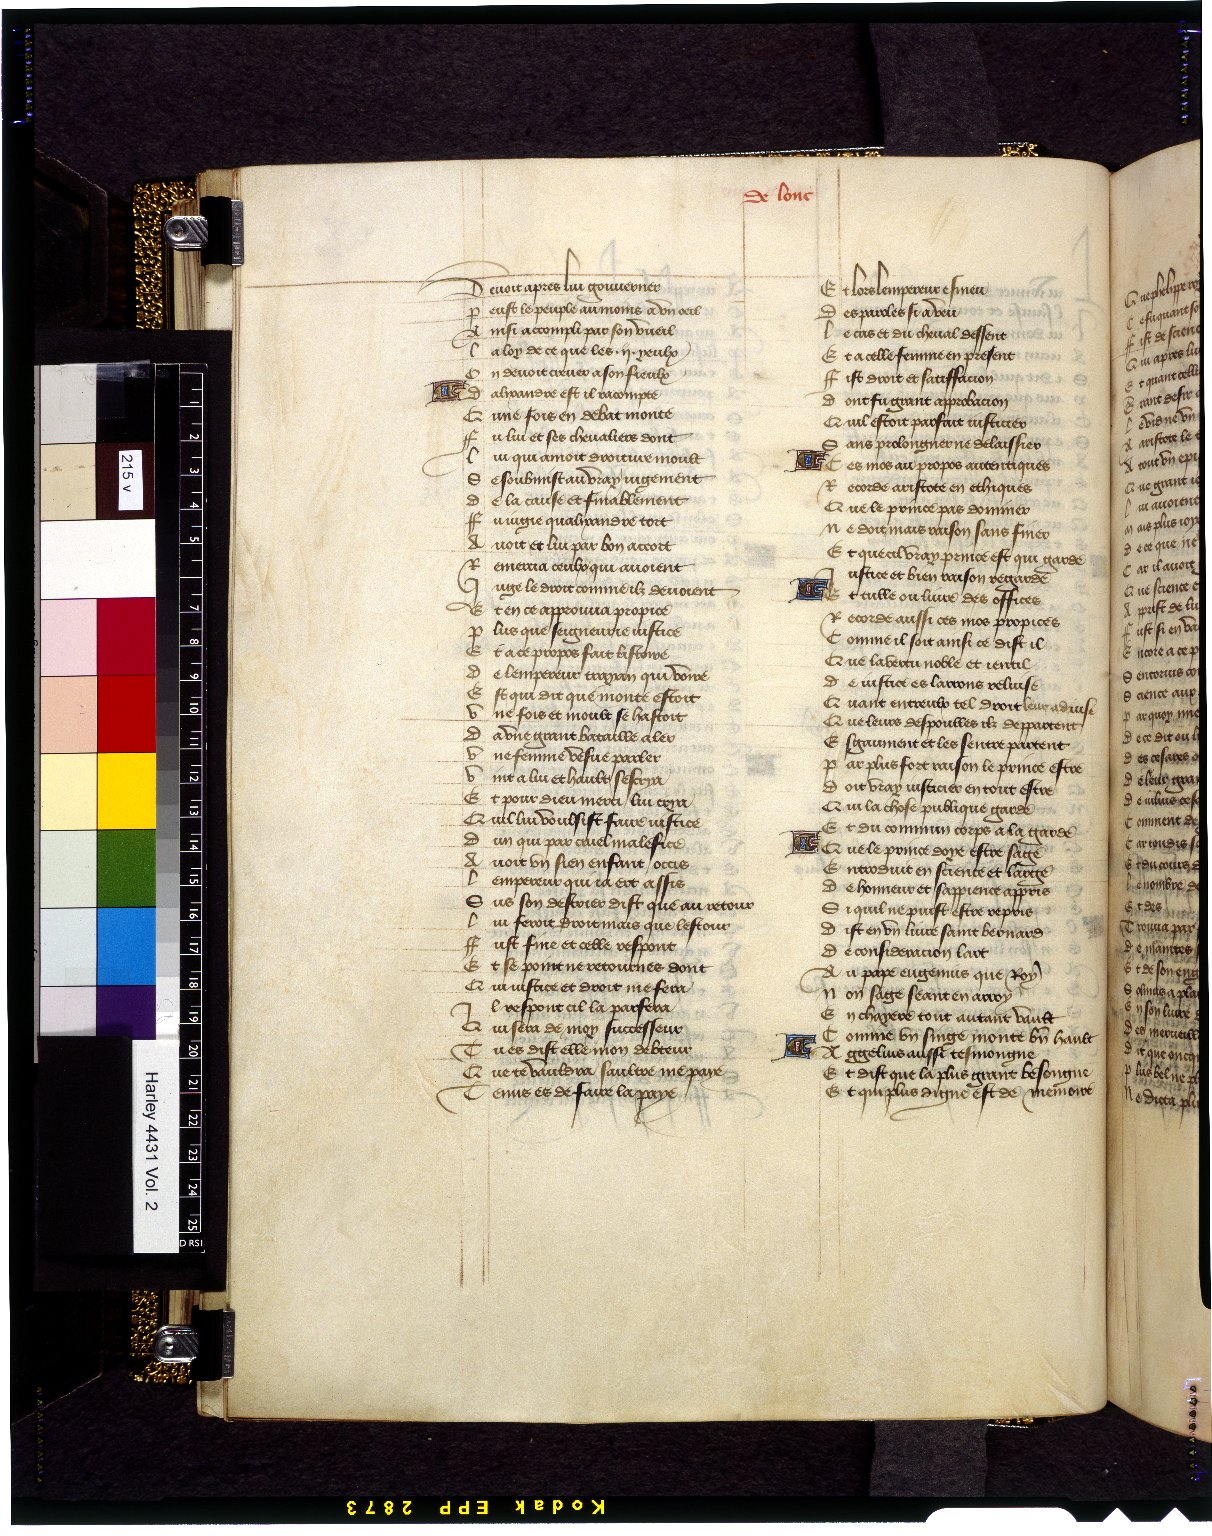 de lonc
Devoit apres lui gouverner
Peust le peuple au moins a un oeil
Ainsi accompli par son vueil
La loy de ce que les .ii. yeulx
On devoit crever a son fieulx
D alixandre est il racompte
Que une fois en debat monte
Fu lui et ses chevaliers dont
Lui qui amoit droiture moult
Se soubmist au vray jugement
De la cause et finablement
Fu jugie qualixandre tort
Avoit et lui par bon accort
Remercia ceulx qui avoient
Juge le droit comme ilz devoient
Et en ce approuva propice
Plus que seigneurie justice
Et a ce propos fait listoire
De lempereur trayan qui voire
Est qui dit que monte estoit
Une fois et moult se hastoit
Da une grant bataille aler
Une femme vesve parler
Vint a lui et hault sescrya
Et pour dieu merci lui crya
Quil lui voulsist faire justice
Dun qui par cruel malefice
Avoit un sien enfant occis
Lempereur qui ja ert assis
Sus son destrier dist que au retour
Lui feroit droit mais que lestour
Fust fine et celle respont
Et se point ne retournes dont
Qui justice et droit me fera
Il respont cil la parfera
Qui sera de moy successeur
Tu es dist elle mon debteur
Que te vauldra saultre me paye
Tenus es de faire la paye
Et lors lempereur esmeu
Des paroles si a veu
Le cas et du cheval dessent
Et a celle femme en present
Fist droit et satiffacion
Dont fu grant approbacion
Quil estoit parfait justicier
Sans prolongner ne delaissier
Ces mos au propos autentiques
Recorde aristote en ethiques
Que le prince pas dominer
Ne doit mais raison sans finer
Et que cil vray prince est qui garde
Justice et bien raison regarde
Et tulle ou livre des offices
Recorde aussi ces mos propices
Comme il soit ainsi ce dist il
Que la vertu noble et jentil
De justice es larrons reluise
Quant entreulx tel droit leur aduise
Que leurs despoulles ilz departent
Esgaument et les sentre partent
Par plus fort raison le prince estre
Doit vray justicier en tout estre
Qui la chose publique garde
Et du commun corps a la garde
Que le prince doye estre sage
Introduit en science et large
De honneur et sappience appris
Si quil ne puist estre repris
Dist en un livre saint bernard
De consideracion lart
Au pape eugenius que Roy
Non sage seant en arroy
En chayere tout autant vault
Comme un singe monte en hault
Aggelius aussi tesmongne
Et dist que la plus grant besongne
Et qui plus digne est de memoire
215 v
Harley 4431 Vol. 2
Kodak EPP 2873